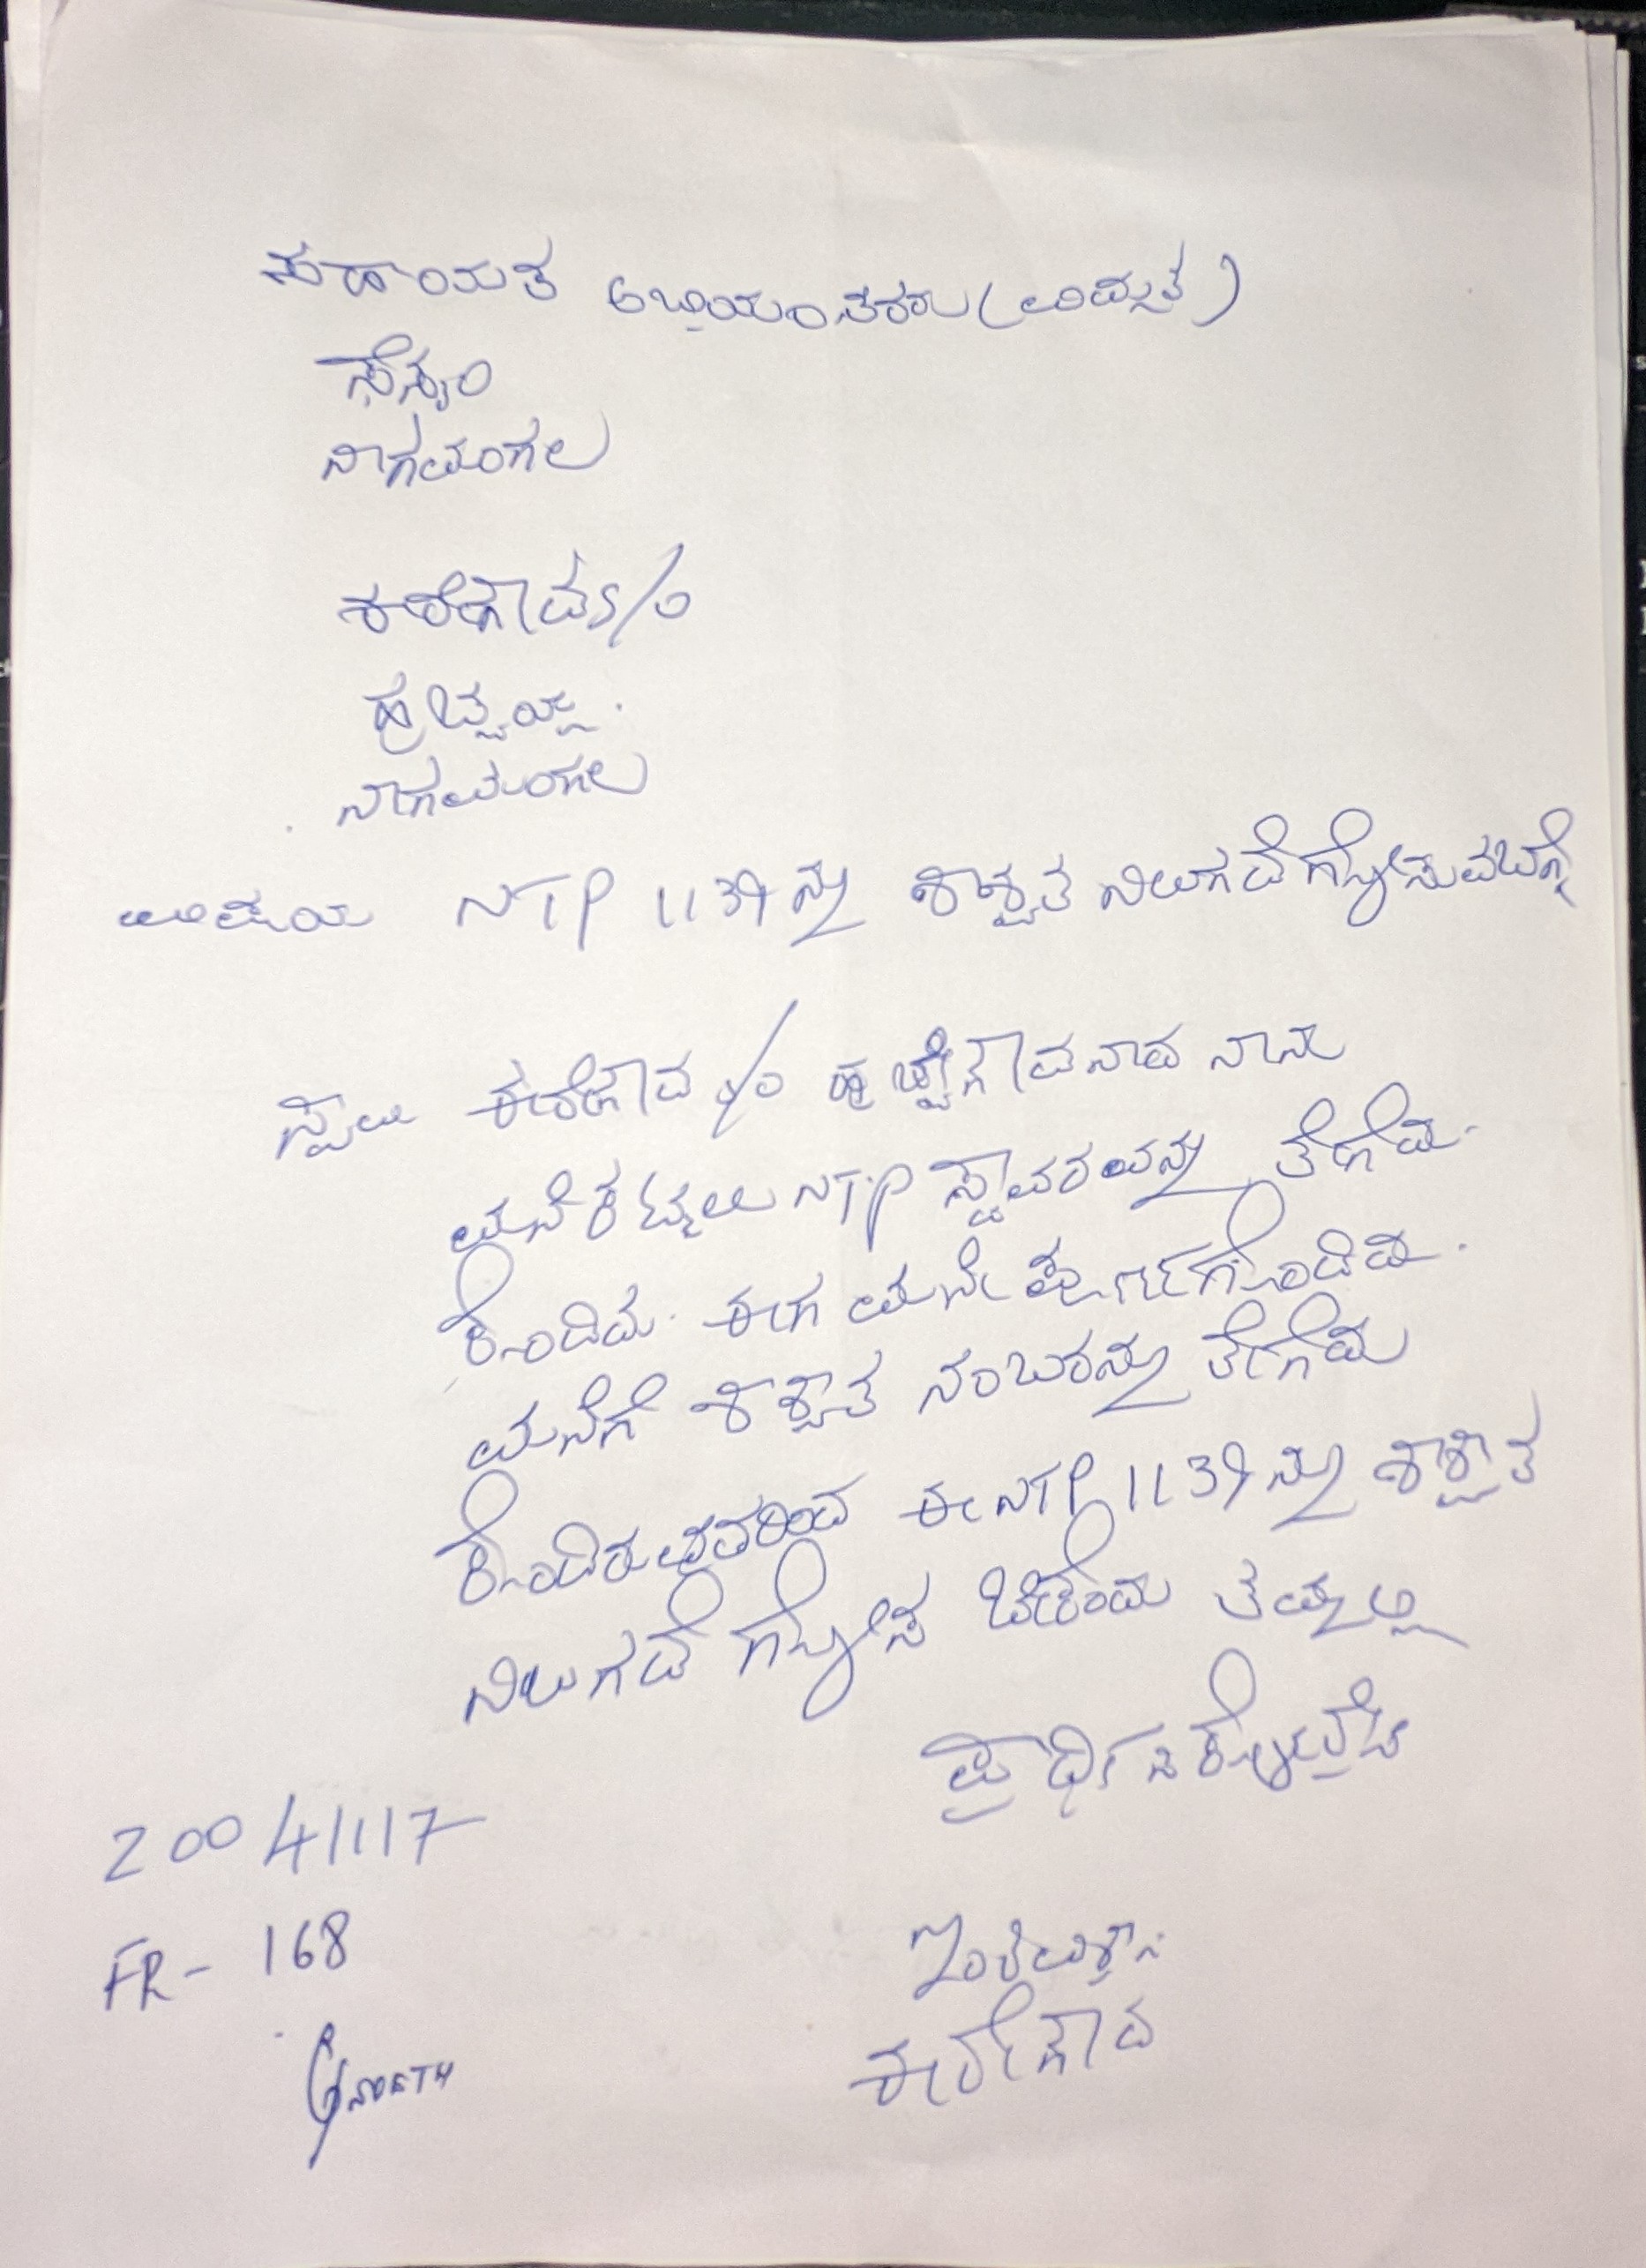 ಸಹಾಯಕ ಅಭಿಯಂತರರು (ವಿದ್ಯುತ್)
ಸೆಸ್ಕಂ
ನಾಗಮಂಗಲ
ಕರೀಗೌಡ S/o
ನಾಗಮಂಗಲ
ವಿಷಯ NTP 1139 ನ್ನು ಶಾಶ್ವತ ನಿಲುಗಡೆ ಗೊಳಿಸುವ ಬಗ್ಗೆ
ಸ್ವಾಮಿ ಕರೀಗೌಡ S/o ಹುಚ್ಚೇಗೌಡನಾದ ನಾನು
ಮನೆ ಕಟ್ಟಲು NTP ಸ್ಥಾವರವನ್ನು ತೆಗೆದು
ಕೊಂಡಿದ್ದು ಈಗ ಮನೆ ಪೂರ್ಣಗೊಂಡಿದ್ದು
ಮನೆಗೆ ಶಾಶ್ವತ ನಂಬರನ್ನು ತೆಗೆದು
ಕೊಂಡಿರುವುದರಿಂದ ಈ NTP 1139 ನ್ನು ಶಾಶ್ವತ
ನಿಲುಗಡೆ ಗೊಳಿಸ ಬೇಕೆಂದು ತಮ್ಮಲ್ಲಿ
ಪ್ರಾರ್ಥಿಸಿಕೊಳ್ಳುತ್ತೇನೆ
20041117
FR - 168
ಇಂತಿ ವಿಶ್ವಾಸಿ
ಕರೀಗೌಡ